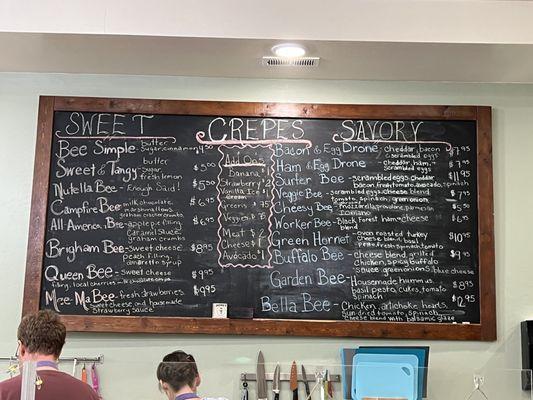 SWEET
CREPES
SAVORY
Bee Simple - butter
sugar, cinnamon 4.50
Sweet & Tangy - butter
sugar
fresh lemon
$5.00
Nutella Bee - Enough Said! $5.50
Campfire Bee - milk chocolate,
marshmallows
graham cracker crumbs
$6.95
All-American Bee - apple pie filling
Caramel Sauce
graham crumbs
$6.95
Brigham Bee - sweet cheese
peach filling
crumbs
$8.95
Queen Bee - sweet cheese
local cherries
$9.95
Mrs. Ma Bee - fresh strawberries
sweet cheese and housemade
Strawberry Sauce
$9.95
Add Ons
Banana
Strawberry
Vanilla Ice
Cream
Veggies
Meat $2
Cheese $1
Avocado $1
Bacon & Egg Drone - cheddar, bacon
scrambled eggs
Ham & Egg Drone - cheddar, ham
scrambled eggs
$7.95
Surfer Bee - scrambled eggs, cheddar
bacon, fresh tomato, avocado, spinach
$11.95
Veggie Bee - scrambled eggs, cheese blend
tomato, spinach, green onion
$7.50
Cheesy Bee - mozzarella, provolone, parmesan
romano
$5.50
Worker Bee - Black Forest ham & cheese
blend
$6.95
Green Hornet - oven roasted turkey
cheese blend, basil
pesto, fresh spinach, tomato
$10.95
Buffalo Bee - cheese blend, grilled
Chicken, spicy buffalo
sauce, green onions, blue cheese
$9.95
Garden Bee - Housemade hummus,
basil pesto, cukes, tomato
spinach
$8.95
Bella Bee - Chicken, artichoke hearts,
Sun dried tomato, spinach
Cheese blend with balsamic glaze